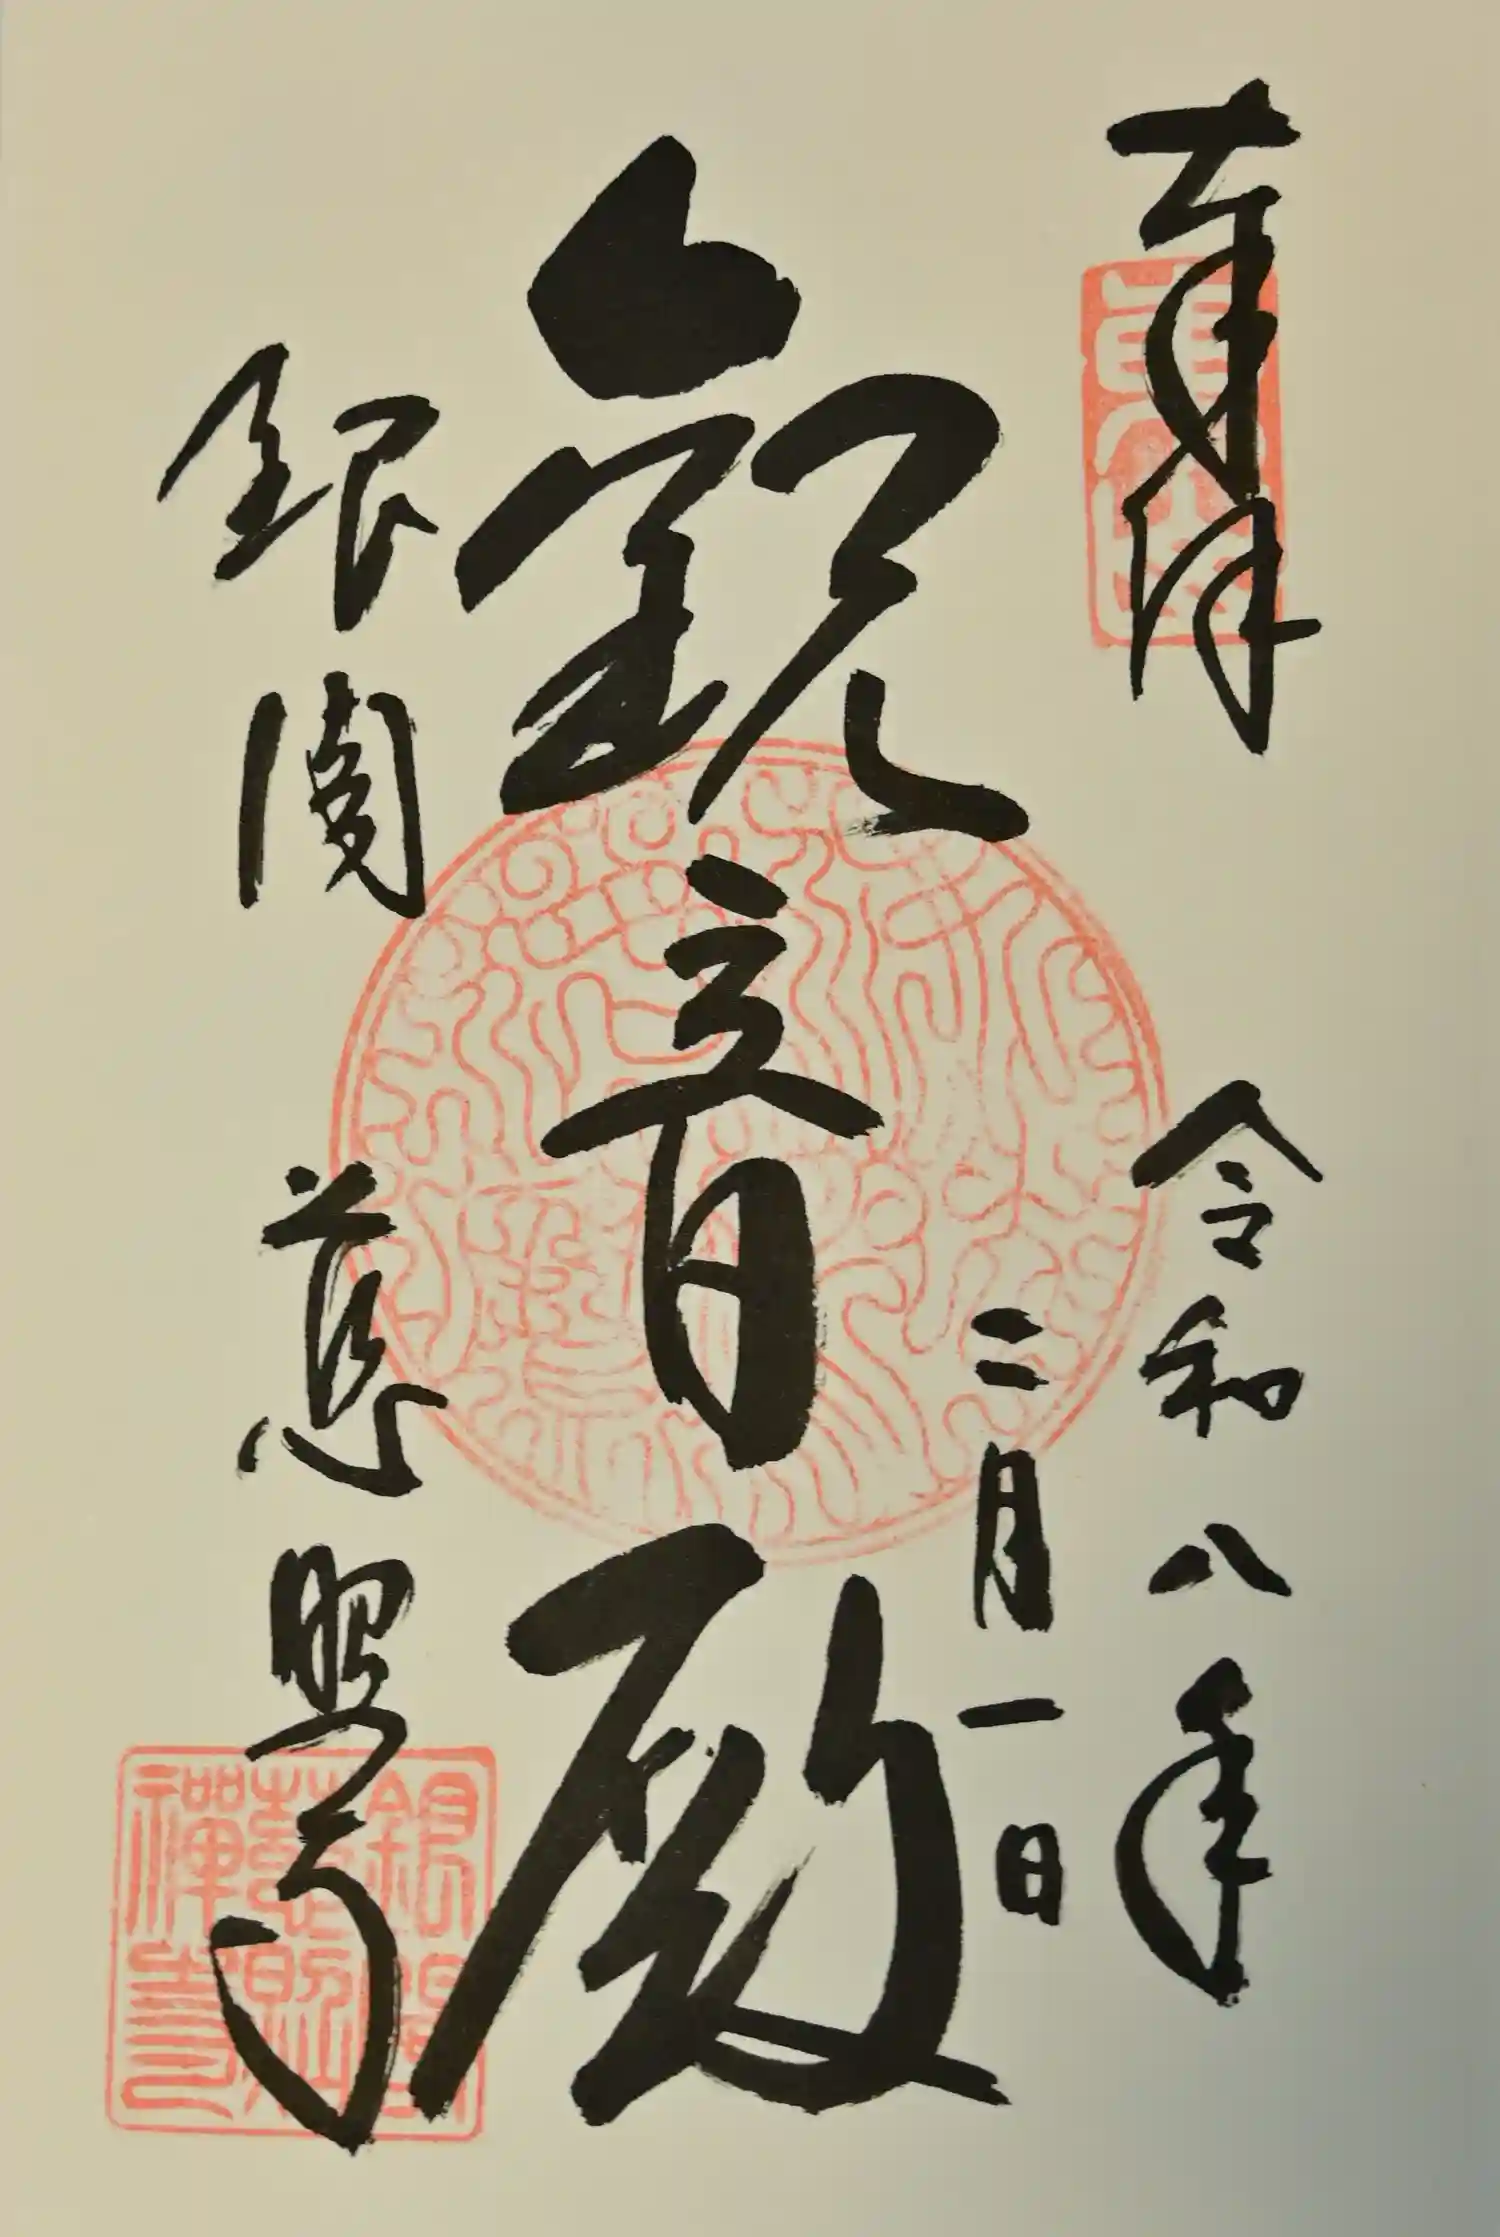 奉拝
令和八年
二月一日
観音殿
銀閣
慈照寺
銀閣
慈照
禅寺